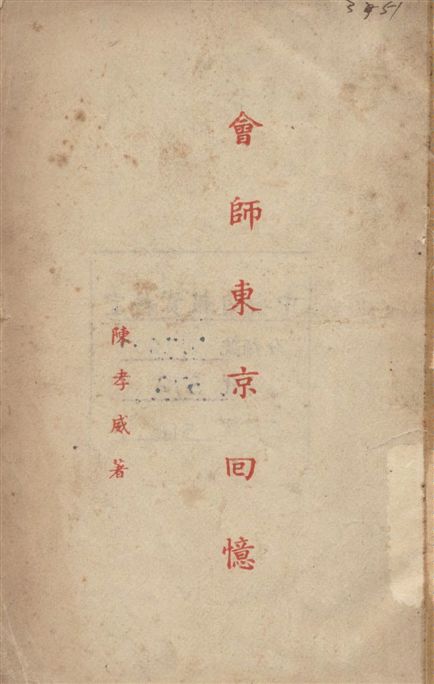 3451
會師東京回憶
陳孝威著